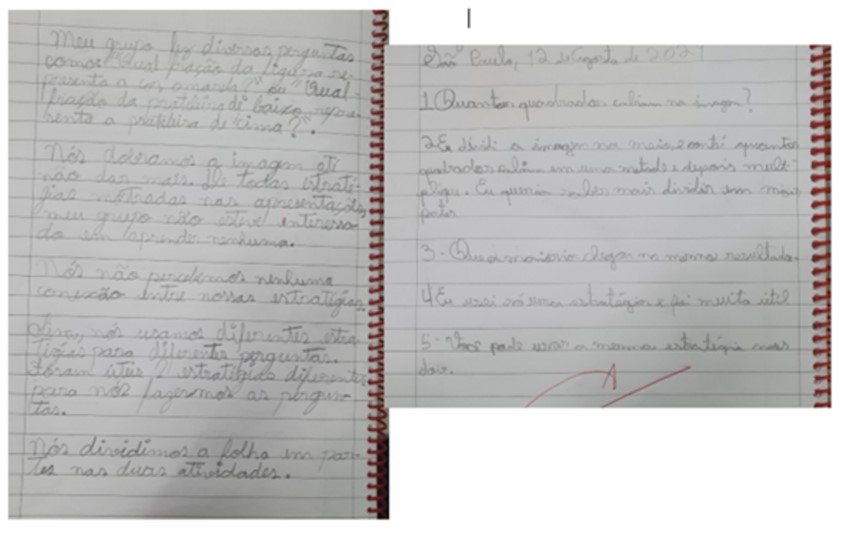 Meu grupo fez diversas perguntas
como: "Qual fração da figura re-
presenta a cor amarela?" ou "Qual
fração da prateleira de baixo repre-
senta a prateleira de cima?".
Nós dobramos a imagem até
não dar mais. De todas estraté-
gias mostradas nas apresentações,
meu grupo não esteve interessa-
do em aprender nenhuma.
Nós não percebemos nenhuma
conexão entre nossas estratégias.
Sim, nós usamos diferentes estra-
tégias para diferentes perguntas.
Foram úteis 2 estratégias diferentes
para nós fazermos as pergun-
tas.
Nós dividimos a folha em par-
tes nas duas atividades.
São Paulo, 12 de Agosto de
1 Quantos quadrados cabiam na imagem?
2 Eu dividi a imagem no meio, e contei quantos
quadrados cabiam em uma metade e depois multi-
pliquei. Eu queria saber mais dividir em
partes
3 - Que a maioria chegou no mesmo resultado.
4 Eu usei só uma estratégia e foi muito útil
5 - Você pode usar a mesma estratégia nas
duas.